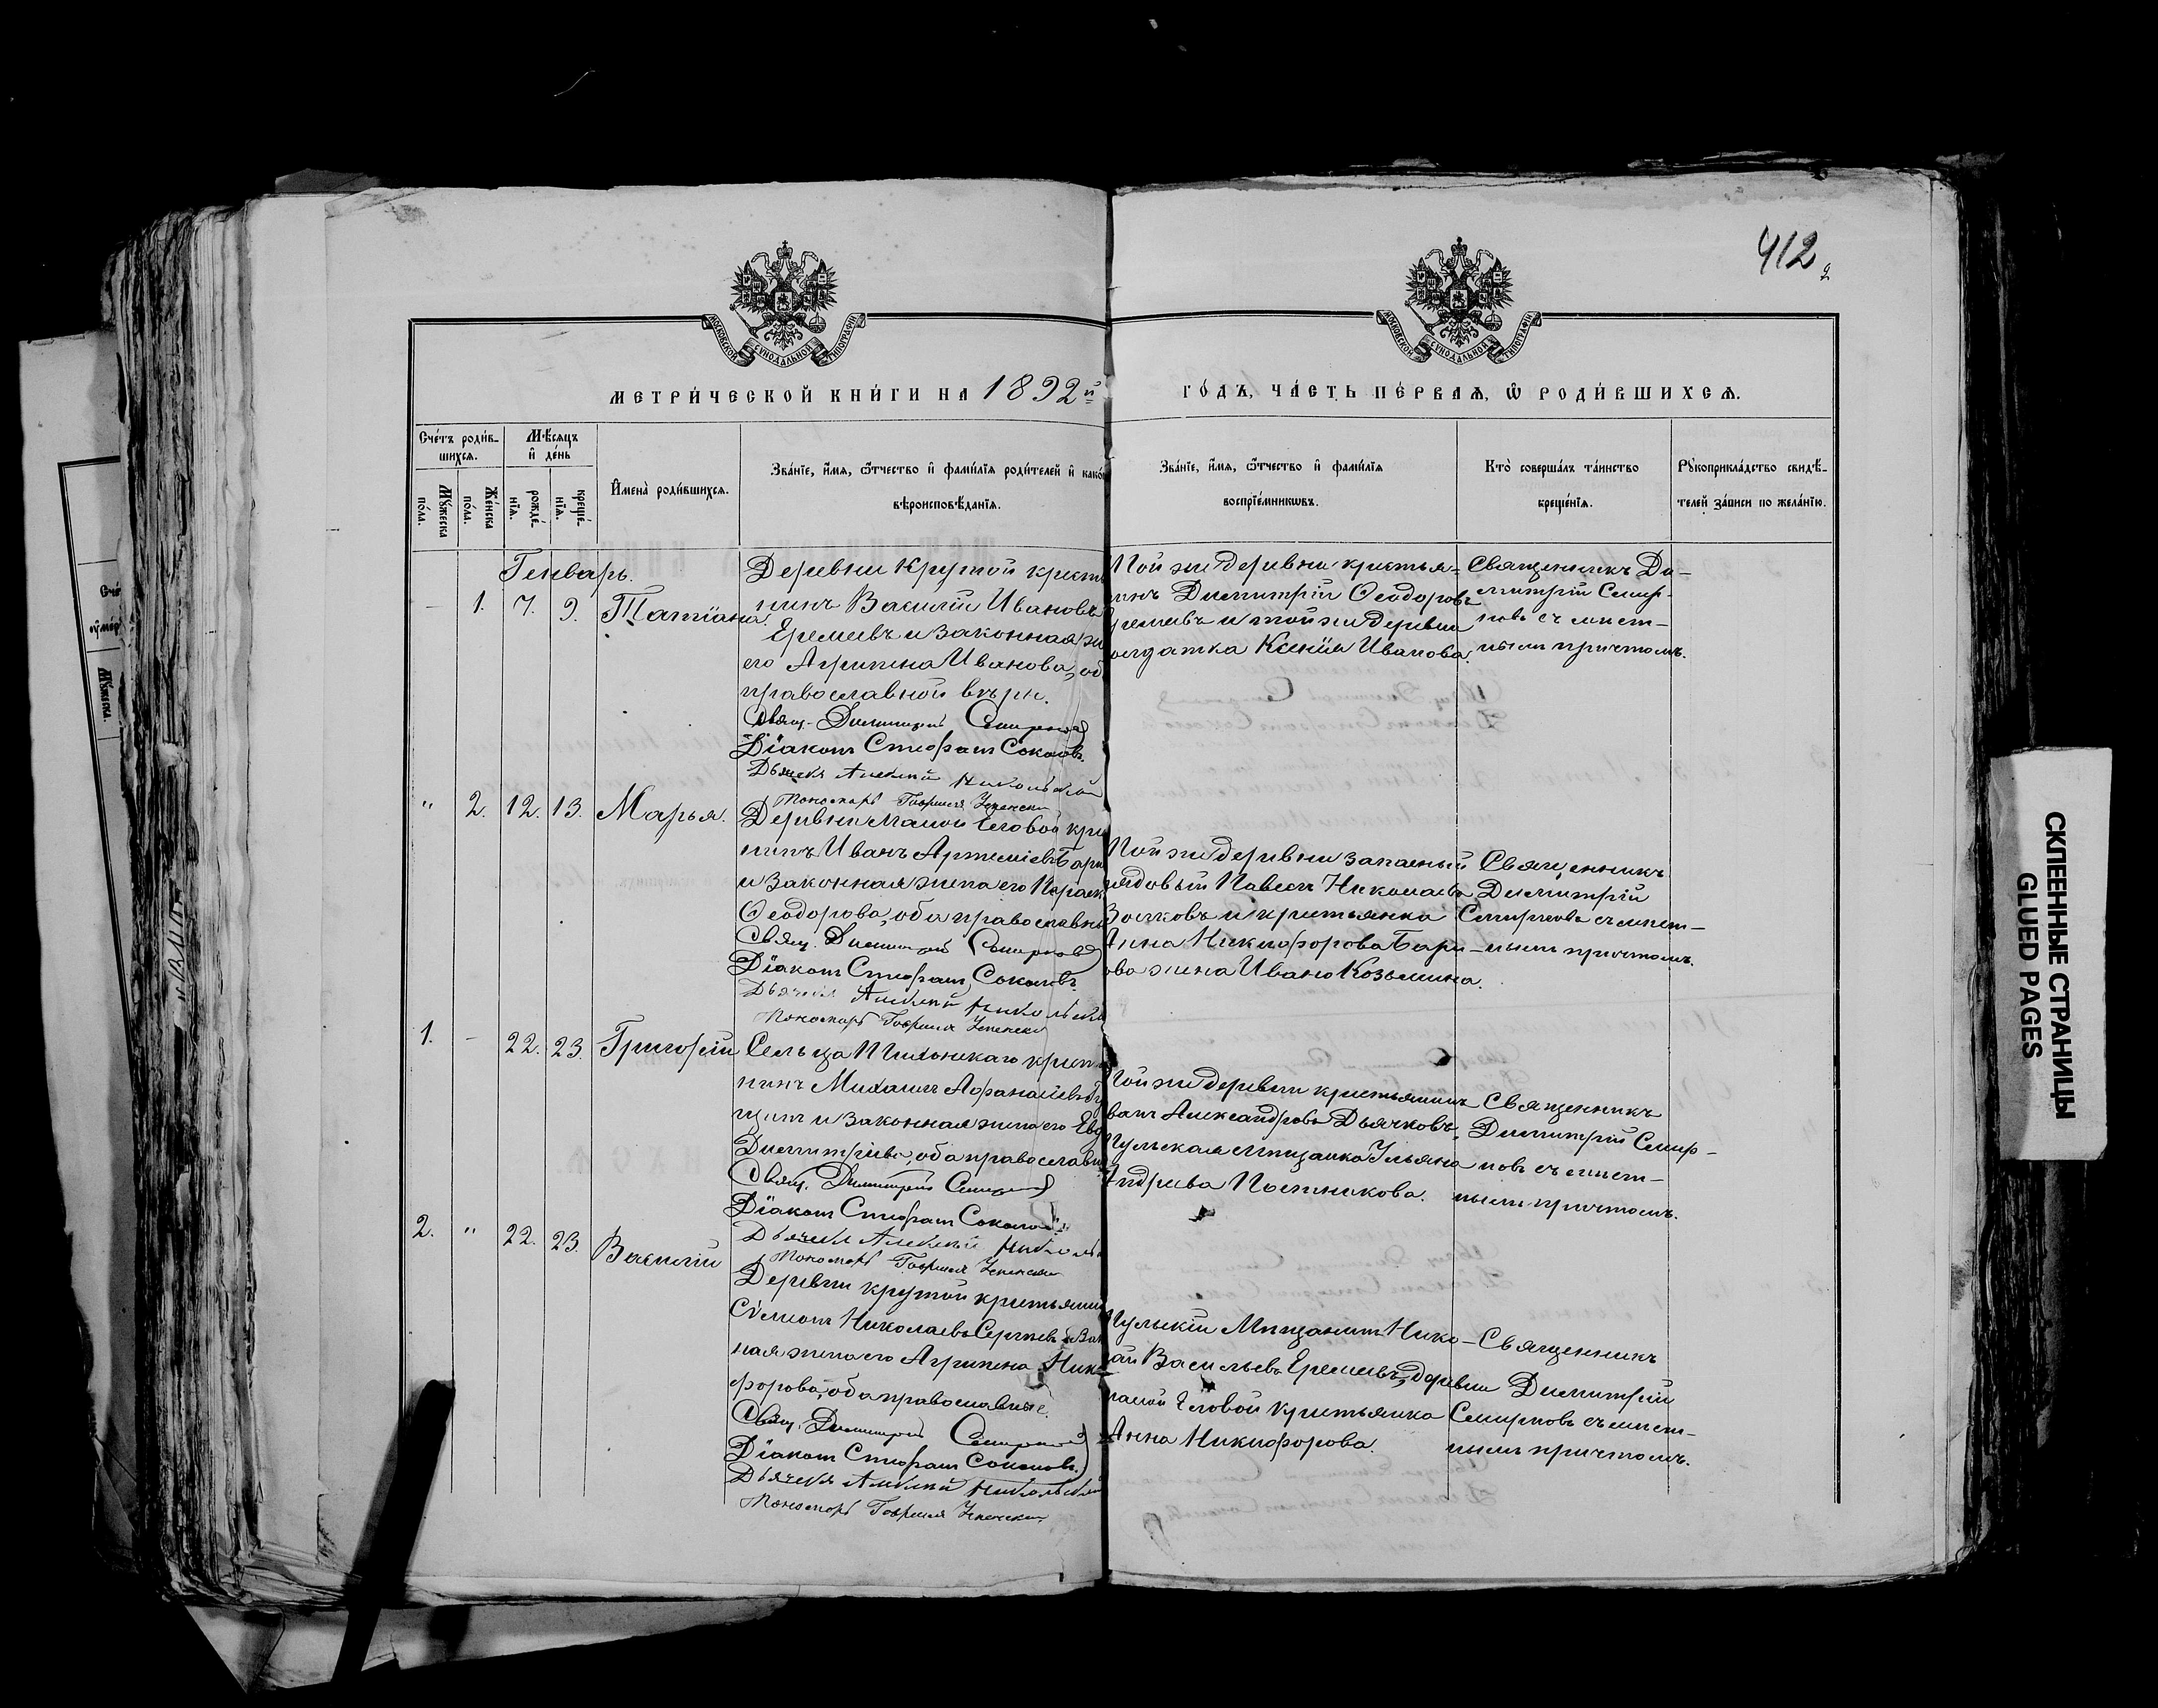 412
2
МОСКОВСКОЙ СѴНОДАЛЬНОЙ ТИПОГРАФІИ
МОСКОВСКОЙ СѴНОДАЛЬНОЙ ТИПОГРАФІИ
МЕТРИ́ЧЕСКОЙ КНИ́ГИ НА 1892й
ГО́ДЪ, ЧА́СТЬ ПЕ́РВАѦ, Ѡ҆ РОДИ́ВШИХСѦ.
Сче́тъ роди́в-
шихсѧ.
Мѹ́жеска
по́ла.
Же́нска
по́ла.
Мѣ́сѧцъ
и҆ де́нь
рожде́-
нїѧ.
креще́-
нїѧ.
И҆мена̀ роди́вшихсѧ.
Зва́нїе, и҆́мѧ, ѻ҆́тчество и҆ фами́лїѧ роди́телей и҆ како́
вѣроисповѣ́данїѧ.
Зва́нїе, и҆́мѧ, ѻ҆́тчество и҆ фами́лїѧ
воспрїе́мникѡвъ.
Кто̀ соверша́лъ та́инство
креще́нїѧ.
Рѹкоприкла́дство свидѣ́-
телей за́писи по жела́нїю.
Генварь.
– 1. 7. 9. Татіана.
Деревни Крутой крест
нинъ Василій Ивановъ
Еремевъ и законная же
его Агрипена Иванова, об
православной вѣры.
Свящ. Димитрій Смирнов
Діаконъ Стефанъ Соколовъ.
Дьячекъ Алексѣй Никольский
Пономарь Гавриилъ Успенский
Той же деревни крестья-
инъ Димитрій Ѳеодоровъ
ремевъ и той же деревни
олдатка Ксенія Иванова.
Священникъ Ди-
митрій Смир-
новъ съ мѣст-
нымъ причтомъ.
" 2. 12. 13. Марья.
Деревни Малой Еловой кре
нинъ Иванъ Артеміевъ Бари
и законная жена его Параск
Ѳеодорова, оба православны
Свящ. Димитрій Смирнов
Діаконъ Стефанъ Соколовъ.
Дьячекъ Алексѣй Никольский
Пономарь Гавриилъ Успенский
Той же деревни запасный
рядовый Павелъ Николаевъ
и крестьянка
Анна Никифорова Бари-
ова жена Ивана Козьмина.
Священникъ
Димитрій
Смирновъ съ мѣст-
нымъ причтомъ.
1. – 22. 23. Григорій
Сельца крест
нинъ Михаилъ Аѳанасіевъ
и законная жена его Евд
Димитріева, оба православн
Свящ. Димитрій Смирнов
Діаконъ Стефанъ Соколовъ
Дьячекъ Алексѣй Николь
Пономарь Гавриилъ Успенский
Той же деревни крестьянинъ
ванъ Александровъ Дьячковъ,
Тульская мѣщанка Ульяна
Андреева Постникова.
Священникъ
Димитрій Смир-
новъ съ мѣст-
нымъ причтомъ.
2. " 22. 23. Василій
Деревни Крутой крестьянин
Сѵмеонъ Николаевъ Сергѣевъ и зак
ная жена его Агрипена Ник-
форова, оба православные.
Свящ. Димитрій Смирнов
Діаконъ Стефанъ Соколовъ.
Дьячекъ Алексѣй Никольский
Пономарь Гавриилъ Успенский
Тульскій Мѣщанинъ Нико-
ай Васильевъ Еремевъ, деревни
малой Еловой крестьянка
Анна Никифорова.
Священникъ
Димитрій
Смирновъ съ мѣст-
нымъ причтомъ.
СКЛЕЕННЫЕ СТРАНИЦЫ
GLUED PAGES